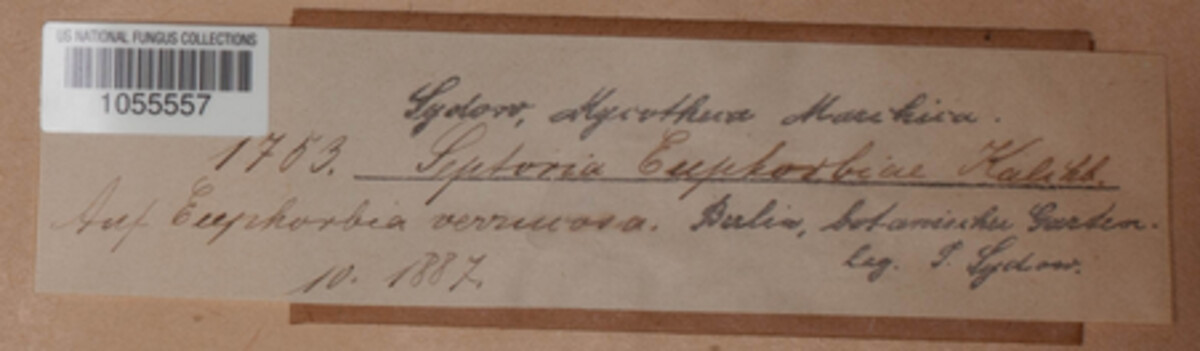 US NATIONAL FUNGUS COLLECTIONS
1055557
Sydow, Mycotheca Marchica.
1753. Septoria Euphorbiae Kalchb.
Auf Euphorbia verrucosa. Berlin, botanischer Garten.
leg. P. Sydow.
10. 1887.